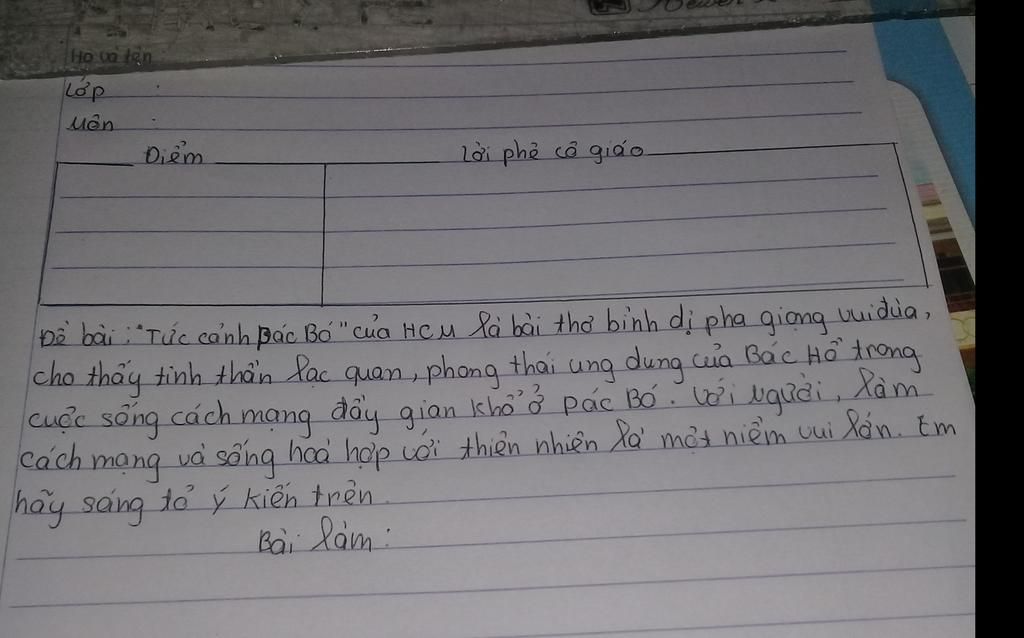 Họ và tên
Lớp :
Môn :
Điểm
Lời phê cô giáo
Đề bài: "Tức cảnh Pác Bó" của HCM là bài thơ bình dị pha giọng vui đùa,
cho thấy tinh thần lạc quan, phong thái ung dung của Bác Hồ trong
cuộc sống cách mạng đầy gian khổ ở Pác Bó. Với Người, làm
cách mạng và sống hoà hợp với thiên nhiên là một niềm vui lớn. Em
hãy sáng tỏ ý kiến trên.
Bài làm: